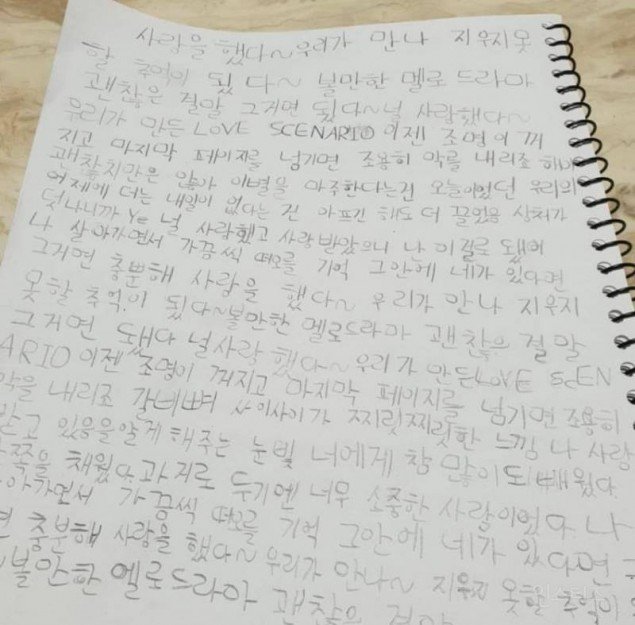 사랑을 했다~ 우리가 만나 지우지 못
할 추억이 됬다~ 볼만한 멜로 드라마
괜찮은 결말 그거면 됬다~널 사랑했다~
우리가 만든 LOVE SCENARIO 이젠 조명이 꺼
지고 마지막 페이지를 넘기면 조용히 막을 내리조
괜찮치만은 않아 이별을 마주한다는건 오늘이었던 우리의
어제에 더는 내일이 없다는 건 아프긴 해도 더 끌었음 상처가
덧나니까 Ye 널 사랑했고 사랑 받았으니 나 이걸로 됐어
나 살아가면서 가끔씩 떠오를 기억 그안에 네가 있다면
그거면 충분해 사랑을 했다~ 우리가 만나 지우지
못할 추억이 됬다~볼만한 멜로드라마 괜찮은 결말
그거면 됐다 널사랑 했다~ 우리가 만든LOVE SCEN
ARIO 이젠 조명이 꺼지고 마지막 페이지를 넘기면 조용히
막을 내리조 갈비뼈 사이사이가 찌릿찌릿한 느낌 나 사랑
받고 있음을알게 해주는 눈빛 너에게 참 많이도 배웠다
쪽을 채웠다 과거로 두기엔 너무 소중한 사람이었다 나
아가면서 가끔씩 떠오를 기억 그안에 네가 있다면
충분해 사랑을 했다~ 우리가 만나~ 지우지 못할 추억이
볼만한 멜로드라마 괜찮은 결말